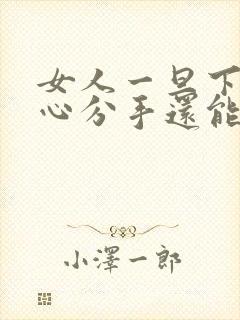 女人一旦下
心分手還能
小澤一郎